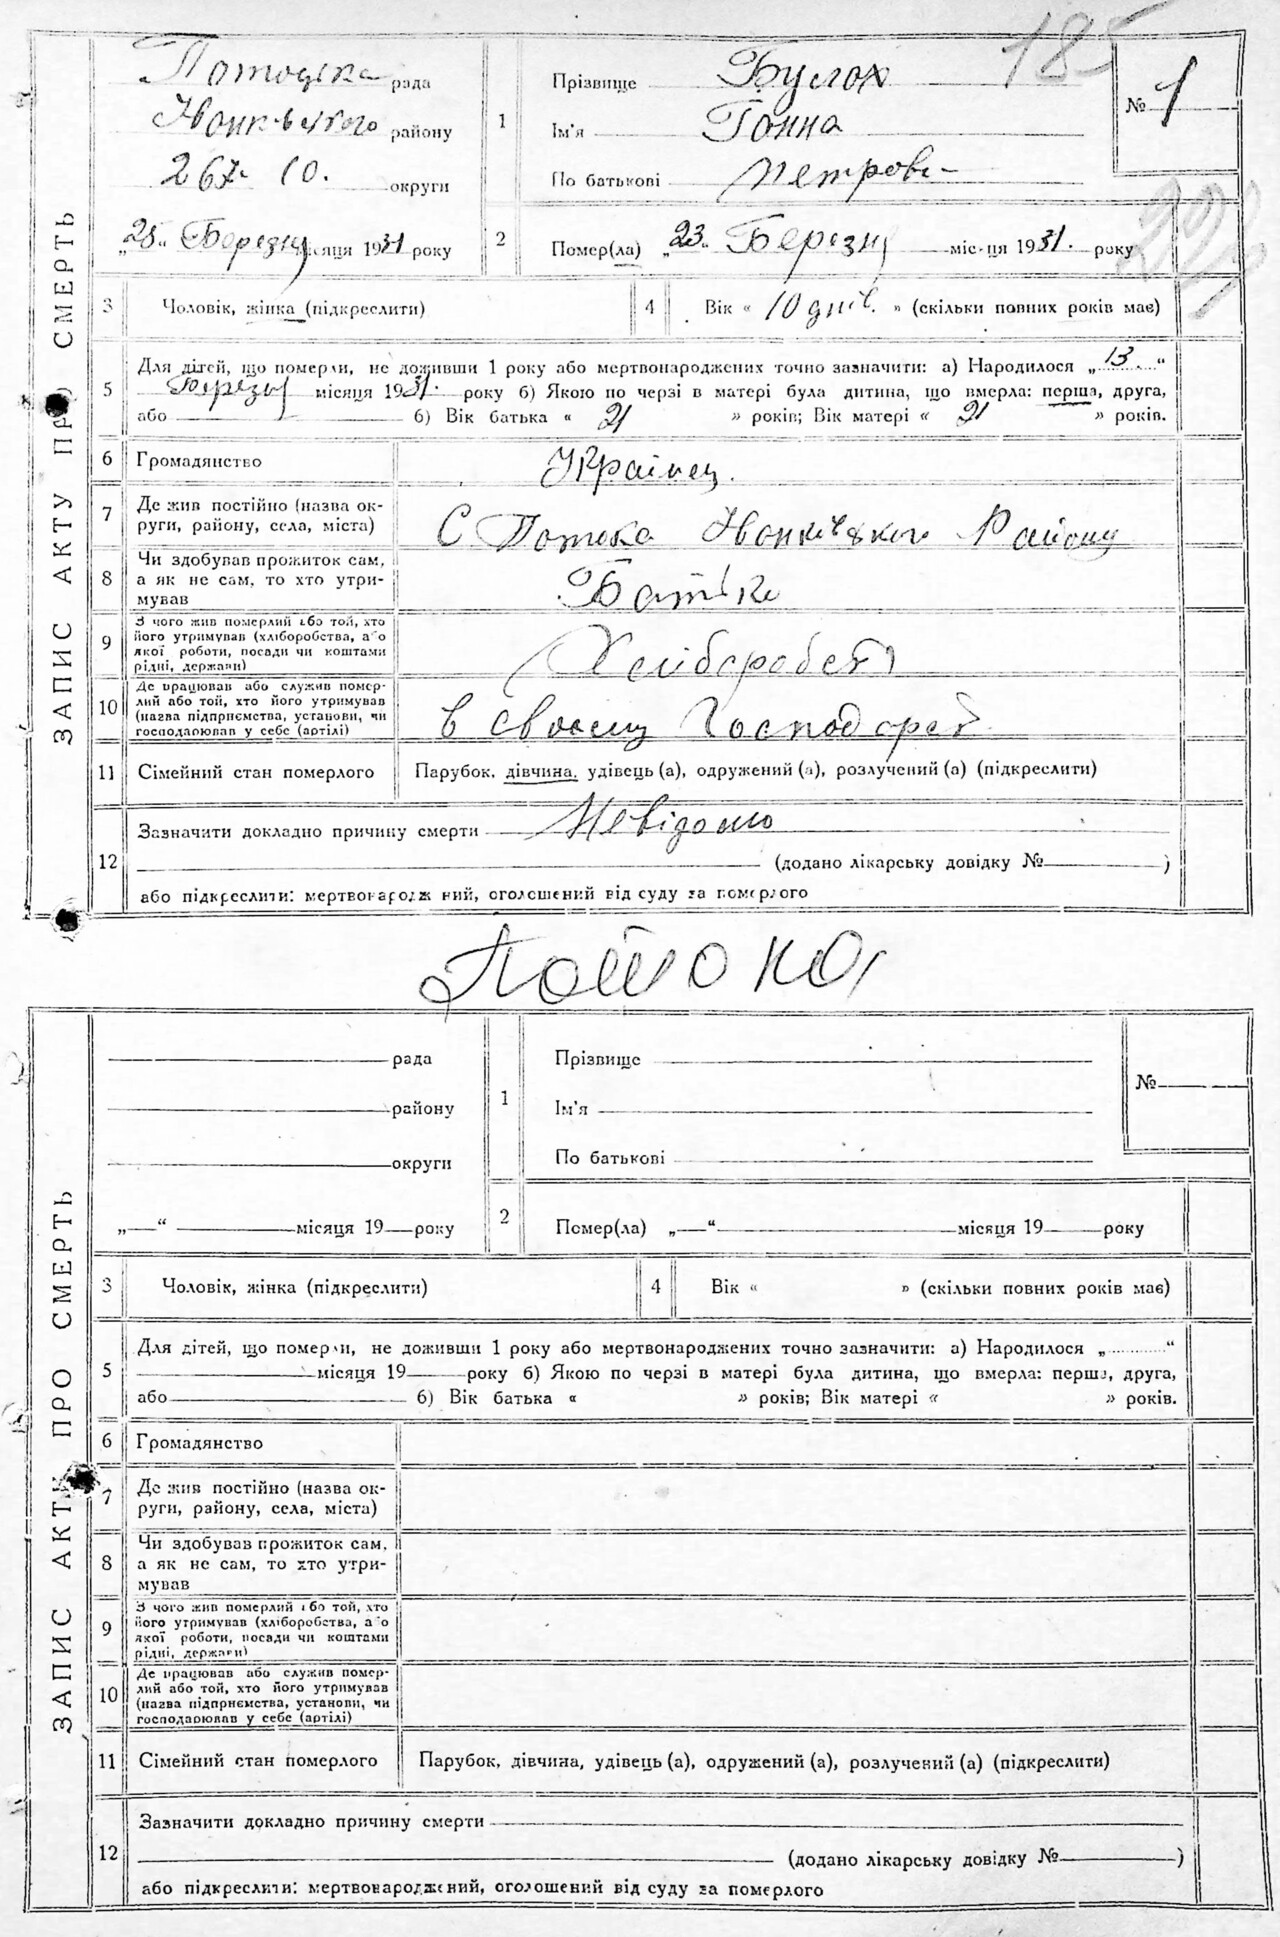 185
ЗАПИС АКТУ ПРО СМЕРТЬ
Потоцька рада
Іванківського району
округи
„25„ Березня місяця 1931 року
1
Прізвище Булох
Ім'я Ганна
По батькові Петрові
№ 1
2
Помер(ла) „23„ Березня місяця 1931. року
3
Чоловік, жінка (підкреслити)
4
Вік « 10 днів. » (скільки повних років має)
5
Для дітей, що померли, не доживши 1 року або мертвонароджених точно зазначити: а) Народилося „13“
Березня місяця 1931. року б) Якою по черзі в матері була дитина, що вмерла: перша, друга,
або б) Вік батька « 21 » років; Вік матері « 21 » років.
6
Громадянство
Украінец.
7
Де жив постійно (назва округи, району, села, міста)
С Потока Іванківського Району
8
Чи здобував прожиток сам,
а як не сам, то хто утри-
мував
Батьки
9
З чого жив померлий або той, хто
його утримував (хліборобства, або
якої роботи, посади чи коштами
рідні, держави)
10
Де працював або служив помер-
лий або той, хто його утримував
(назва підприємства, установи, чи
господарював у себе (артілі)
в своему
11
Сімейний стан померлого
Парубок, дівчина, удівець (а), одружений (а), розлучений (а) (підкреслити)
12
Зазначити докладно причину смерти Невідомо
(додано лікарську довідку № )
або підкреслити: мертвонароджений, оголошений від суду за померлого
Потока
ЗАПИС АКТУ ПРО СМЕРТЬ
рада
району
округи
„ “ місяця 19 року
1
Прізвище
Ім'я
По батькові
№
2
Помер(ла) „ “ місяця 19 року
3
Чоловік, жінка (підкреслити)
4
Вік « » (скільки повних років має)
5
Для дітей, що померли, не доживши 1 року або мертвонароджених точно зазначити: а) Народилося „ “
місяця 19 року б) Якою по черзі в матері була дитина, що вмерла: перша, друга,
або б) Вік батька « » років; Вік матері « » років.
6
Громадянство
7
Де жив постійно (назва ок-
руги, району, села, міста)
8
Чи здобував прожиток сам,
а як не сам, то хто утри-
мував
9
З чого жив померлий або той, хто
його утримував (хліборобства, або
якої роботи, посади чи коштами
рідні, держави)
10
Де працював або служив помер-
лий або той, хто його утримував
(назва підприємства, установи, чи
господарював у себе (артілі)
11
Сімейний стан померлого
Парубок, дівчина, удівець (а), одружений (а), розлучений (а) (підкреслити)
12
Зазначити докладно причину смерти
(додано лікарську довідку № )
або підкреслити: мертвонароджений, оголошений від суду за померлого